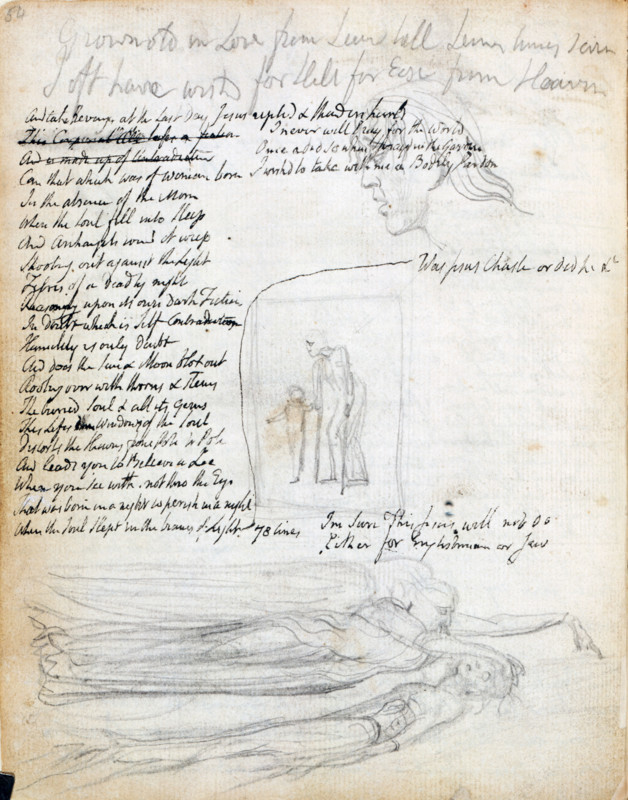 54
Grown old in Love from Seven till Seven times Seven
I oft have wishd for Hell for Ease from Heaven
And take Revenge at the Last Day
Jesus replied & thunders hurld
I never will Pray for the World
Once I did so when I prayd in the Garden
I wishd to take with me a Bodily Pardon
This Corporeal life's a fiction
And is made up of Contradiction
Can that which was of woman born
In the absence of the Morn
When the Soul fell into Sleep
And Archangels round it weep
Shooting out against the Light
Fibres of a deadly night
Reasoning upon its own Dark Fiction
In Doubt which is Self Contradiction
Humility is only Doubt
And does the Sun & Moon blot out
Rooting over with thorns & stems
The buried Soul & all its Gems
This Lifes dim Windows of the Soul
Distorts the Heavens from Pole to Pole
And leads you to Believe a Lie
When you see with not thro the Eye
That was born in a night to perish in a night
When the Soul slept in the beams of Light. 78 lines
Was Jesus Chaste or did he &c
Im sure This Jesus will not do
Either for Englishman or Jew